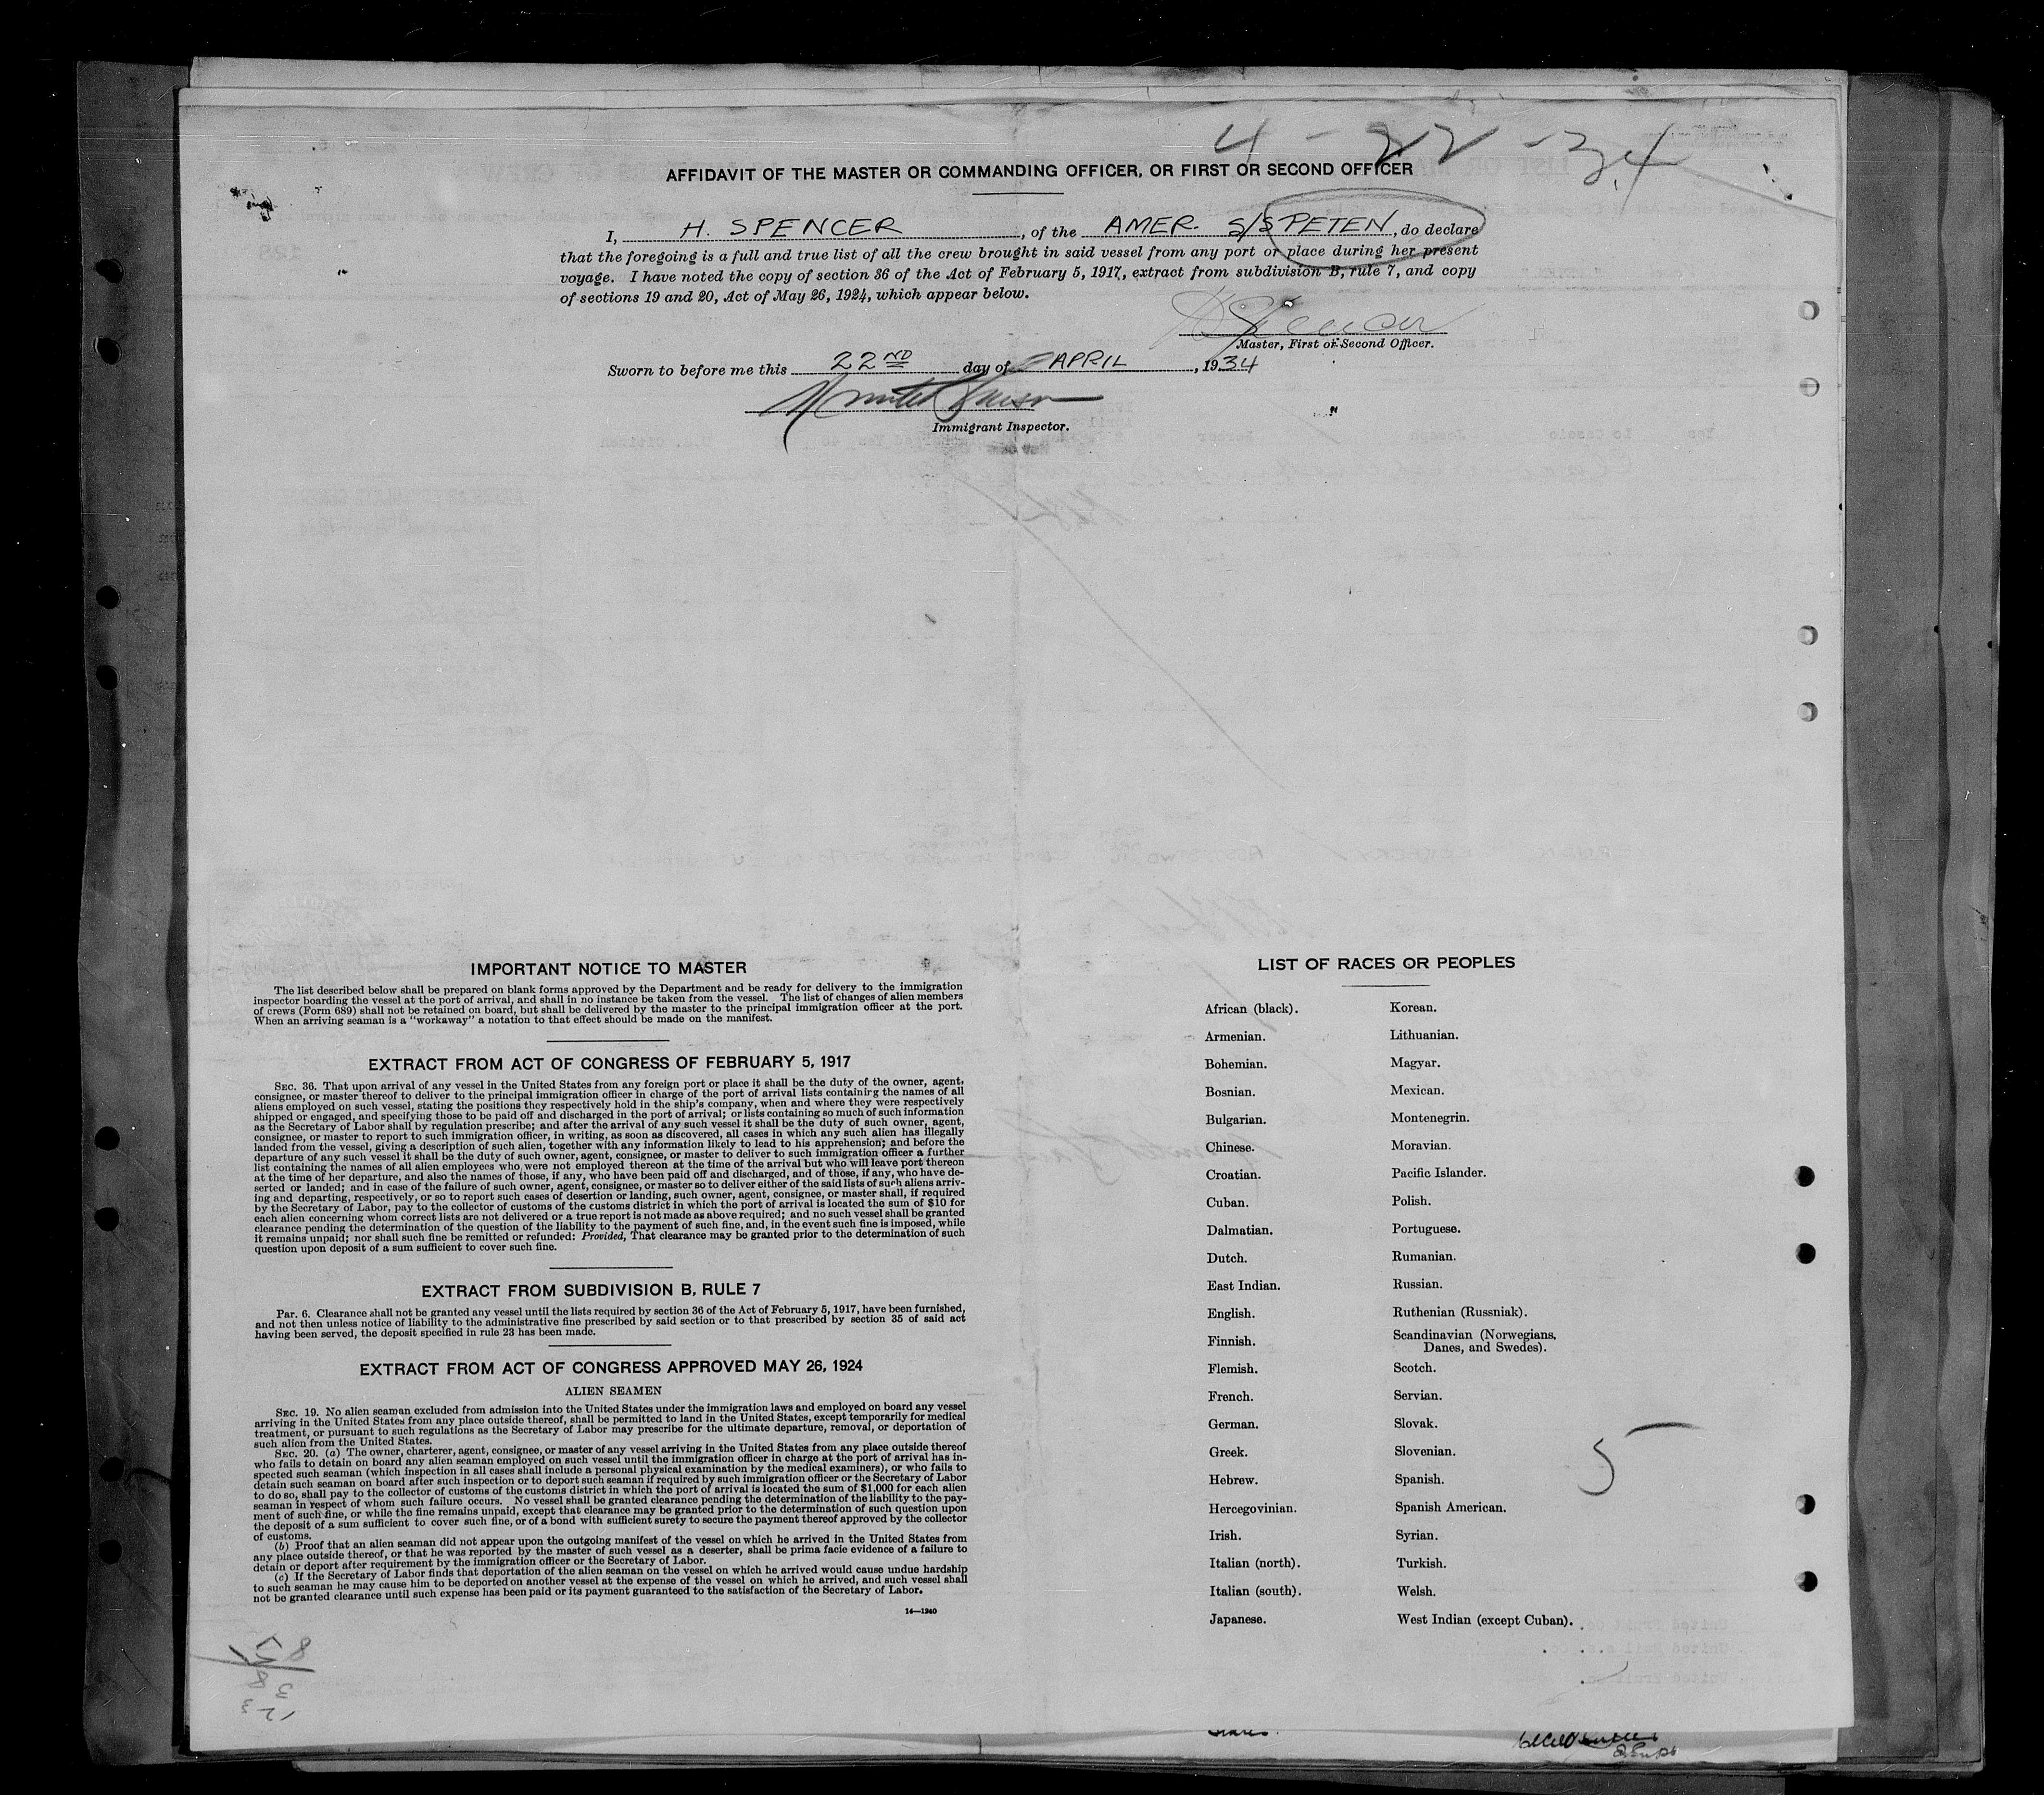 4-22-34
AFFIDAVIT OF THE MASTER OR COMMANDING OFFICER, OR FIRST OR SECOND OFFICER
I, H. SPENCER, of the AMER. S/S PETEN, do declare
that the foregoing is a full and true list of all the crew brought in said vessel from any port or place during her present
voyage. I have noted the copy of section 36 of the Act of February 5, 1917, extract from subdivision B, rule 7, and copy
of sections 19 and 20, Act of May 26, 1924, which appear below.
H Spencer
Master, First or Second Officer.
Sworn to before me this 22ND day of APRIL, 1934
Immigrant Inspector.
IMPORTANT NOTICE TO MASTER
The list described below shall be prepared on blank forms approved by the Department and be ready for delivery to the immigration
inspector boarding the vessel at the port of arrival, and shall in no instance be taken from the vessel. The list of changes of alien members
of crews (Form 689) shall not be retained on board, but shall be delivered by the master to the principal immigration officer at the port.
When an arriving seaman is a "workaway" a notation to that effect should be made on the manifest.
EXTRACT FROM ACT OF CONGRESS OF FEBRUARY 5, 1917
SEC. 36. That upon arrival of any vessel in the United States from any foreign port or place it shall be the duty of the owner, agent,
consignee, or master thereof to deliver to the principal immigration officer in charge of the port of arrival lists containing the names of all
aliens employed on such vessel, stating the positions they respectively hold in the ship's company, when and where they were respectively
shipped or engaged, and specifying those to be paid off and discharged in the port of arrival; or lists containing so much of such information
as the Secretary of Labor shall by regulation prescribe; and after the arrival of any such vessel it shall be the duty of such owner, agent,
consignee, or master to report to such immigration officer, in writing, as soon as discovered, all cases in which any such alien has illegally
landed from the vessel, giving a description of such alien, together with any information likely to lead to his apprehension; and before the
departure of any such vessel it shall be the duty of such owner, agent, consignee, or master to deliver to such immigration officer a further
list containing the names of all alien employees who were not employed thereon at the time of the arrival but who will leave port thereon
at the time of her departure, and also the names of those, if any, who have been paid off and discharged, and of those, if any, who have de-
serted or landed; and in case of the failure of such owner, agent, consignee, or master so to deliver either of the said lists of such aliens arriv-
ing and departing, respectively, or so to report such cases of desertion or landing, such owner, agent, consignee, or master shall, if required
by the Secretary of Labor, pay to the collector of customs of the customs district in which the port of arrival is located the sum of $10 for
each alien concerning whom correct lists are not delivered or a true report is not made as above required; and no such vessel shall be granted
clearance pending the determination of the question of the liability to the payment of such fine, and, in the event such fine is imposed, while
it remains unpaid; nor shall such fine be remitted or refunded: Provided, That clearance may be granted prior to the determination of such
question upon deposit of a sum sufficient to cover such fine.
EXTRACT FROM SUBDIVISION B, RULE 7
Par. 6. Clearance shall not be granted any vessel until the lists required by section 36 of the Act of February 5, 1917, have been furnished,
and not then unless notice of liability to the administrative fine prescribed by said section or to that prescribed by section 35 of said act
having been served, the deposit specified in rule 23 has been made.
EXTRACT FROM ACT OF CONGRESS APPROVED MAY 26, 1924
ALIEN SEAMEN
SEC. 19. No alien seaman excluded from admission into the United States under the immigration laws and employed on board any vessel
arriving in the United States from any place outside thereof, shall be permitted to land in the United States, except temporarily for medical
treatment, or pursuant to such regulations as the Secretary of Labor may prescribe for the ultimate departure, removal, or deportation of
such alien from the United States.
SEC. 20. (a) The owner, charterer, agent, consignee, or master of any vessel arriving in the United States from any place outside thereof
who fails to detain on board any alien seaman employed on such vessel until the immigration officer in charge at the port of arrival has in-
spected such seaman (which inspection in all cases shall include a personal physical examination by the medical examiners), or who fails to
detain such seaman on board after such inspection or to deport such seaman if required by such immigration officer or the Secretary of Labor
to do so, shall pay to the collector of customs of the customs district in which the port of arrival is located the sum of $1,000 for each alien
seaman in respect of whom such failure occurs. No vessel shall be granted clearance pending the determination of the liability to the pay-
ment of such fine, or while the fine remains unpaid, except that clearance may be granted prior to the determination of such question upon
the deposit of a sum sufficient to cover such fine, or of a bond with sufficient surety to secure the payment thereof approved by the collector
of customs.
(b) Proof that an alien seaman did not appear upon the outgoing manifest of the vessel on which he arrived in the United States from
any place outside thereof, or that he was reported by the master of such vessel as a deserter, shall be prima facie evidence of a failure to
detain or deport after requirement by the immigration officer or the Secretary of Labor.
(c) If the Secretary of Labor finds that deportation of the alien seaman on the vessel on which he arrived would cause undue hardship
to such seaman he may cause him to be deported on another vessel at the expense of the vessel on which he arrived, and such vessel shall
not be granted clearance until such expense has been paid or its payment guaranteed to the satisfaction of the Secretary of Labor.
14—1240
LIST OF RACES OR PEOPLES
African (black).
Armenian.
Bohemian.
Bosnian.
Bulgarian.
Chinese.
Croatian.
Cuban.
Dalmatian.
Dutch.
East Indian.
English.
Finnish.
Flemish.
French.
German.
Greek.
Hebrew.
Hercegovinian.
Irish.
Italian (north).
Italian (south).
Japanese.
Korean.
Lithuanian.
Magyar.
Mexican.
Montenegrin.
Moravian.
Pacific Islander.
Polish.
Portuguese.
Rumanian.
Russian.
Ruthenian (Russniak).
Scandinavian (Norwegians,
Danes, and Swedes).
Scotch.
Servian.
Slovak.
Slovenian.
Spanish.
Spanish American.
Syrian.
Turkish.
Welsh.
West Indian (except Cuban).
5